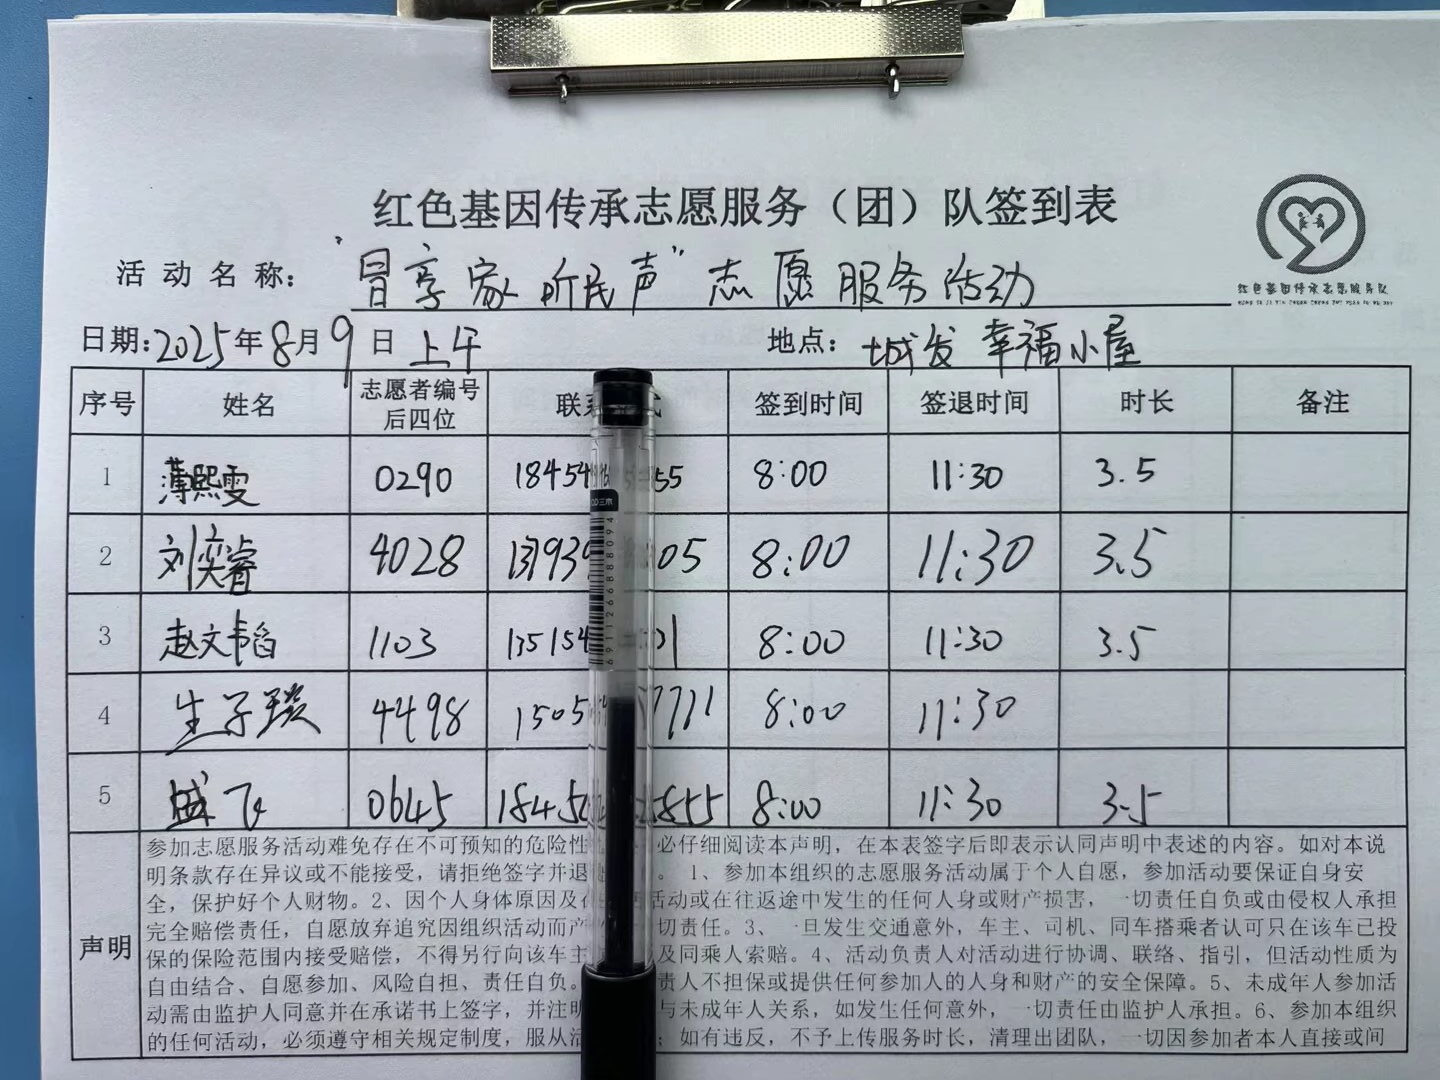 红色基因传承志愿服务（团）队签到表
活动名称： “冒享家 听民声” 志愿服务活动
红色基因传承志愿服务队
日期：2025年8月9日 上午 地点： 城发 幸福小屋
序号 姓名 志愿者编号后四位 签到时间 签退时间 时长 备注
1 薄熙雯 0290 8:00 11:30 3.5
2 刘奕睿 4028 8:00 11:30 3.5
3 赵文韬 1103 8:00 11:30 3.5
4 生子琰 4498 8:00 11:30
5 盛飞 0645 8:00 11:30 3.5
声明
参加志愿服务活动难免存在不可预知的危险性 必仔细阅读本声明，在本表签字后即表示认同声明中表述的内容。如对本说
明条款存在异议或不能接受，请拒绝签字并退 。1、参加本组织的志愿服务活动属于个人自愿，参加活动要保证自身安
全，保护好个人财物。2、因个人身体原因及在 活动或在往返途中发生的任何人身或财产损害，一切责任自负或由侵权人承担
完全赔偿责任，自愿放弃追究因组织活动而产 切责任。3、一旦发生交通意外，车主、司机、同车搭乘者认可只在该车已投
保的保险范围内接受赔偿，不得另行向该车主 及同乘人索赔。4、活动负责人对活动进行协调、联络、指引，但活动性质为
自由结合、自愿参加、风险自担、责任自负。 责人不担保或提供任何参加人的人身和财产的安全保障。5、未成年人参加活
动需由监护人同意并在承诺书上签字，并注明 与未成年人关系，如发生任何意外，一切责任由监护人承担。6、参加本组织
的任何活动，必须遵守相关规定制度，服从活 ；如有违反，不予上传服务时长，清理出团队，一切因参加者本人直接或间